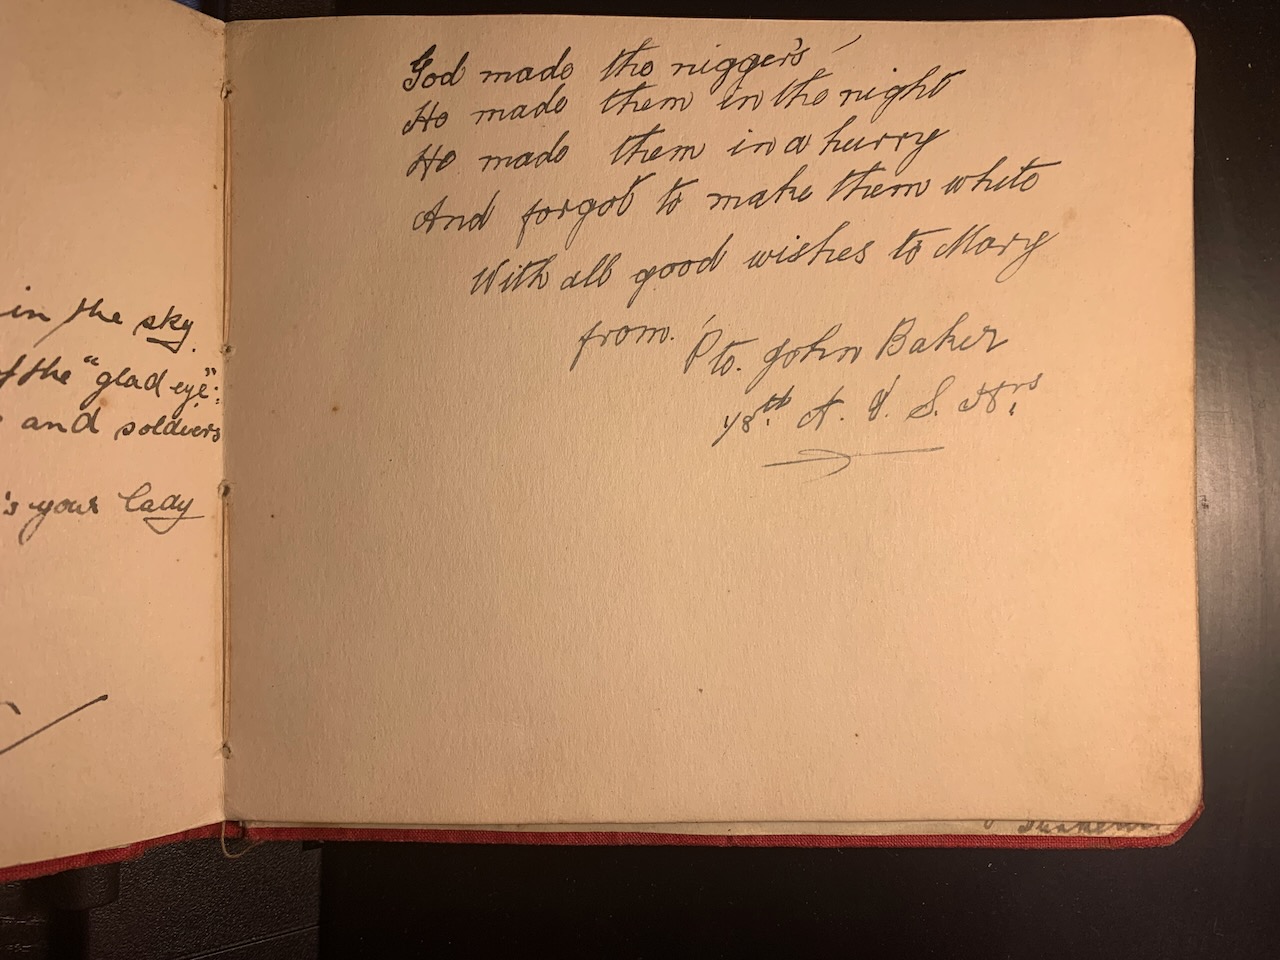 in the sky.
of the "glad eye":
and soldiers
's your lady
God made the nigger's
He made them in the night
He made them in a hurry
And forgot to make them white
With all good wishes to Mary
from. Pte. John Baker
S. Hrs